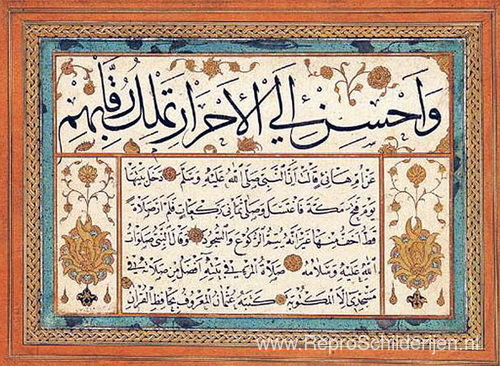 وَاَحْسِنْ اِلَي الْاَحْرَارِ تَمْلِكْ رِقَابَهُمْ
عن ام هاني قالت ان النبي صلى الله عليه وسلم دخل بيتها
يوم فتح مكة فاغتسل وصلى ثماني ركعات فلم ار صلاة
قط اخف منها غير انه يتم الركوع والسجود وقال النبي صلوات
الله عليه وسلامه صلاة المرء في بيته افضل من صلاته في
مسجدي هذا الا المكتوبة كتبه عثمان المعروف بحافظ القرآن
www.ReproSchilderijen.nl